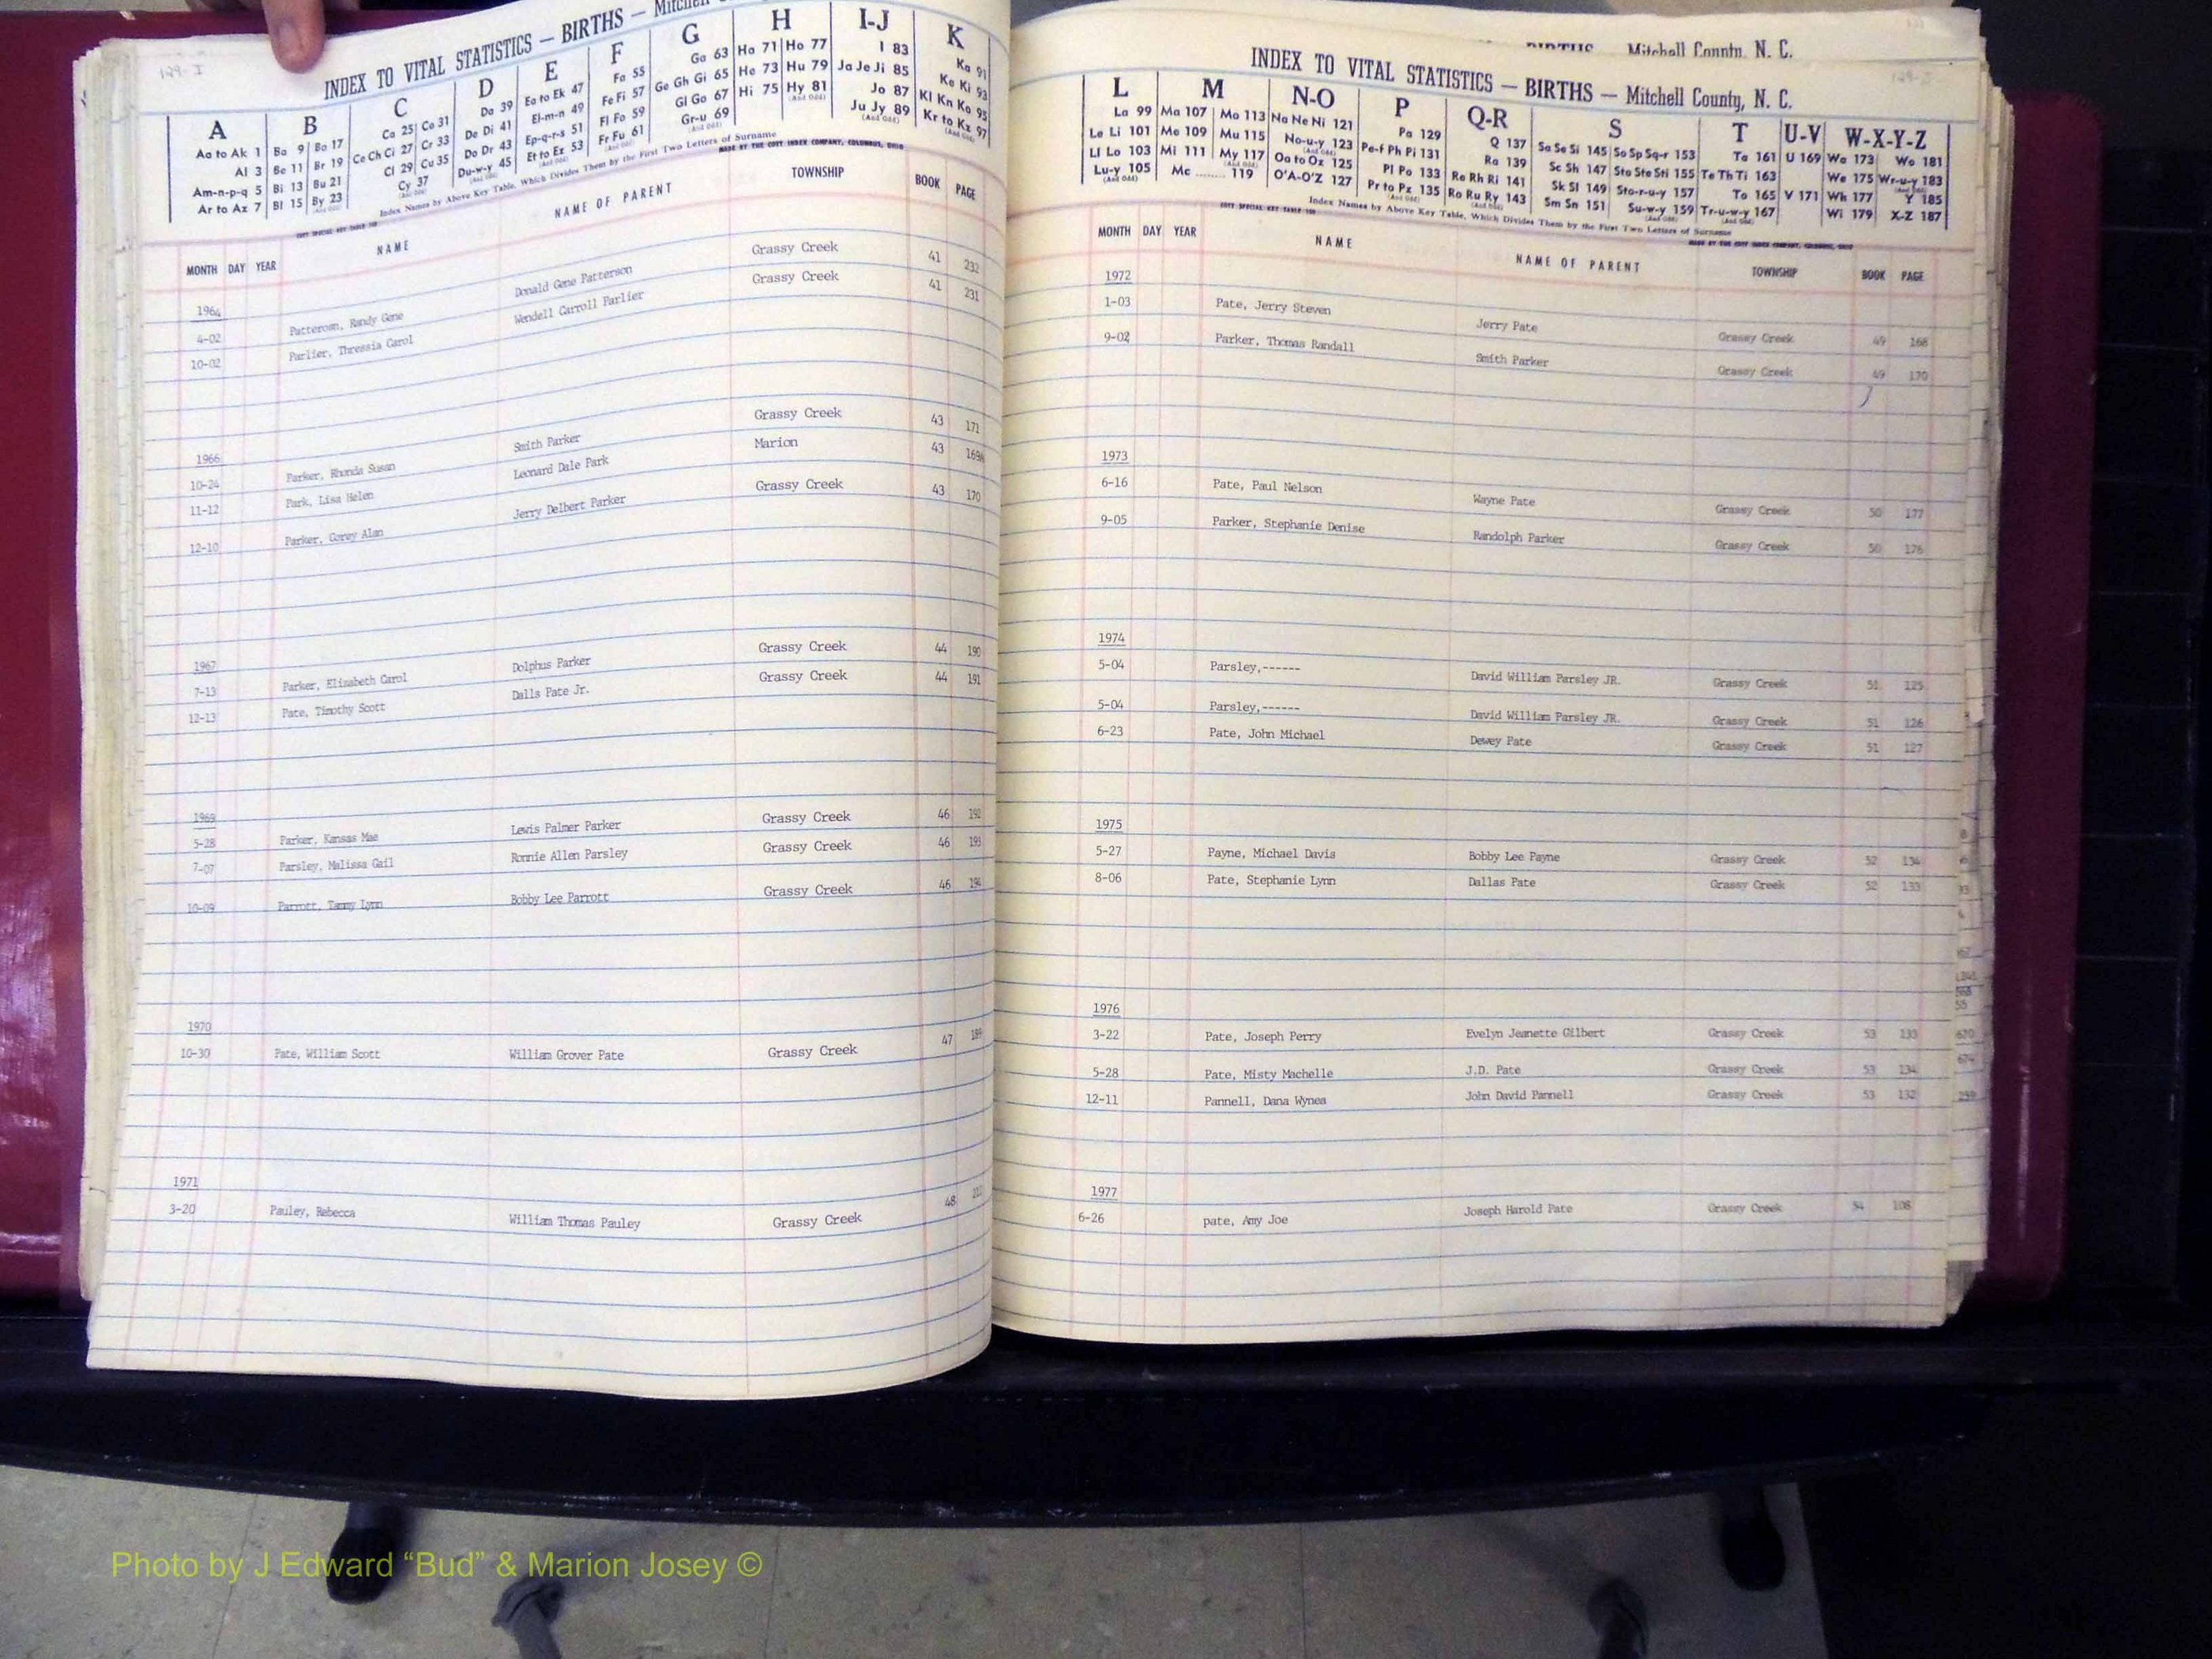 INDEX TO VITAL STATISTICS — BIRTHS — Mitchell
A B C D E F G H I-J K
Aa to Ak 1 Ba 9 Bo 17 Ca 25 Co 31 Da 39 Ea to Ek 47 Fa 55 Ga 63 Ha 71 Ho 77 I 83 Ka 91
Al 3 Be 11 Br 19 Ce Ch Ci 27 Cr 33 De Di 41 El-m-n 49 Fe Fi 57 Ge Gh Gi 65 He 73 Hu 79 Ja Je Ji 85 Ke Ki 93
Am-n-p-q 5 Bi 13 Bu 21 Cl 29 Cu 35 Do Dr 43 Ep-q-r-s 51 Fl Fo 59 Gl Go 67 Hi 75 Hy 81 Jo 87 Kl Kn Ko 95
Ar to Az 7 Bl 15 By 23 Cy 37 Du-w-y 45 Et to Ez 53 Fr Fu 61 Gr-u 69 Ju Jy 89 Kr to Kz 97
Index Names by Above Key Table, Which Divides Them by the First Two Letters of Surname
MADE BY THE COTT INDEX COMPANY, COLUMBUS, OHIO
MONTH DAY YEAR NAME NAME OF PARENT TOWNSHIP BOOK PAGE
1964
4-02 Patterosn, Randy Gene Donald Gene Patterson Grassy Creek 41 232
10-02 Parlier, Thressia Carol Wendell Carroll Parlier Grassy Creek 41 231
1966
10-24 Parker, Rhonda Susan Smith Parker Grassy Creek 43 171
11-12 Park, Lisa Helen Leonard Dale Park Marion 43 169A
12-10 Parker, Corey Alan Jerry Delbert Parker Grassy Creek 43 170
1967
7-13 Parker, Elizabeth Carol Dolphus Parker Grassy Creek 44 190
12-13 Pate, Timothy Scott Dalls Pate Jr. Grassy Creek 44 191
1969
5-28 Parker, Kansas Mae Lewis Palmer Parker Grassy Creek 46 192
7-07 Parsley, Malissa Gail Ronnie Allen Parsley Grassy Creek 46 193
10-09 Parrott, Tammy Lynn Bobby Lee Parrott Grassy Creek 46 194
1970
10-30 Pate, William Scott William Grover Pate Grassy Creek 47 189
1971
3-20 Pauley, Rebecca William Thomas Pauley Grassy Creek 48
BIRTHS Mitchell County, N. C.
INDEX TO VITAL STATISTICS — BIRTHS — Mitchell County, N. C.
L M N-O P Q-R S T U-V W-X-Y-Z
La 99 Ma 107 Mo 113 Na Ne Ni 121 Pa 129 Q 137 Sa Se Si 145 So Sp Sq-r 153 Ta 161 U 169 Wa 173 Wo 181
Le Li 101 Me 109 Mu 115 No-u-y 123 Pe-f Ph Pi 131 Ra 139 Sc Sh 147 Sta Ste Sti 155 Te Th Ti 163 We 175 Wr-u-y 183
Ll Lo 103 Mi 111 My 117 Oa to Oz 125 Pl Po 133 Re Rh Ri 141 Sk Sl 149 Sto-r-u-y 157 To 165 V 171 Wh 177 Y 185
Lu-y 105 Mc ........ 119 O'A-O'Z 127 Pr to Pz 135 Ro Ru Ry 143 Sm Sn 151 Su-w-y 159 Tr-u-w-y 167 Wi 179 X-Z 187
Index Names by Above Key Table, Which Divides Them by the First Two Letters of Surname
MADE BY THE COTT INDEX COMPANY, COLUMBUS, OHIO
MONTH DAY YEAR NAME NAME OF PARENT TOWNSHIP BOOK PAGE
1972
1-03 Pate, Jerry Steven Jerry Pate Grassy Creek 49 168
9-02 Parker, Thomas Randall Smith Parker Grassy Creek 49 170
1973
6-16 Pate, Paul Nelson Wayne Pate Grassy Creek 50 177
9-05 Parker, Stephanie Denise Randolph Parker Grassy Creek 50 176
1974
5-04 Parsley,------ David William Parsley JR. Grassy Creek 51 125
5-04 Parsley,------ David William Parsley JR. Grassy Creek 51 126
6-23 Pate, John Michael Dewey Pate Grassy Creek 51 127
1975
5-27 Payne, Michael Davis Bobby Lee Payne Grassy Creek 52 134
8-06 Pate, Stephanie Lynn Dallas Pate Grassy Creek 52 133
1976
3-22 Pate, Joseph Perry Evelyn Jeanette Gilbert Grassy Creek 53 133
5-28 Pate, Misty Machelle J.D. Pate Grassy Creek 53 134
12-11 Pannell, Dana Wynea John David Pannell Grassy Creek 53 132
1977
6-26 pate, Amy Joe Joseph Harold Pate Grassy Creek 54 108
Photo by J Edward “Bud” & Marion Josey ©